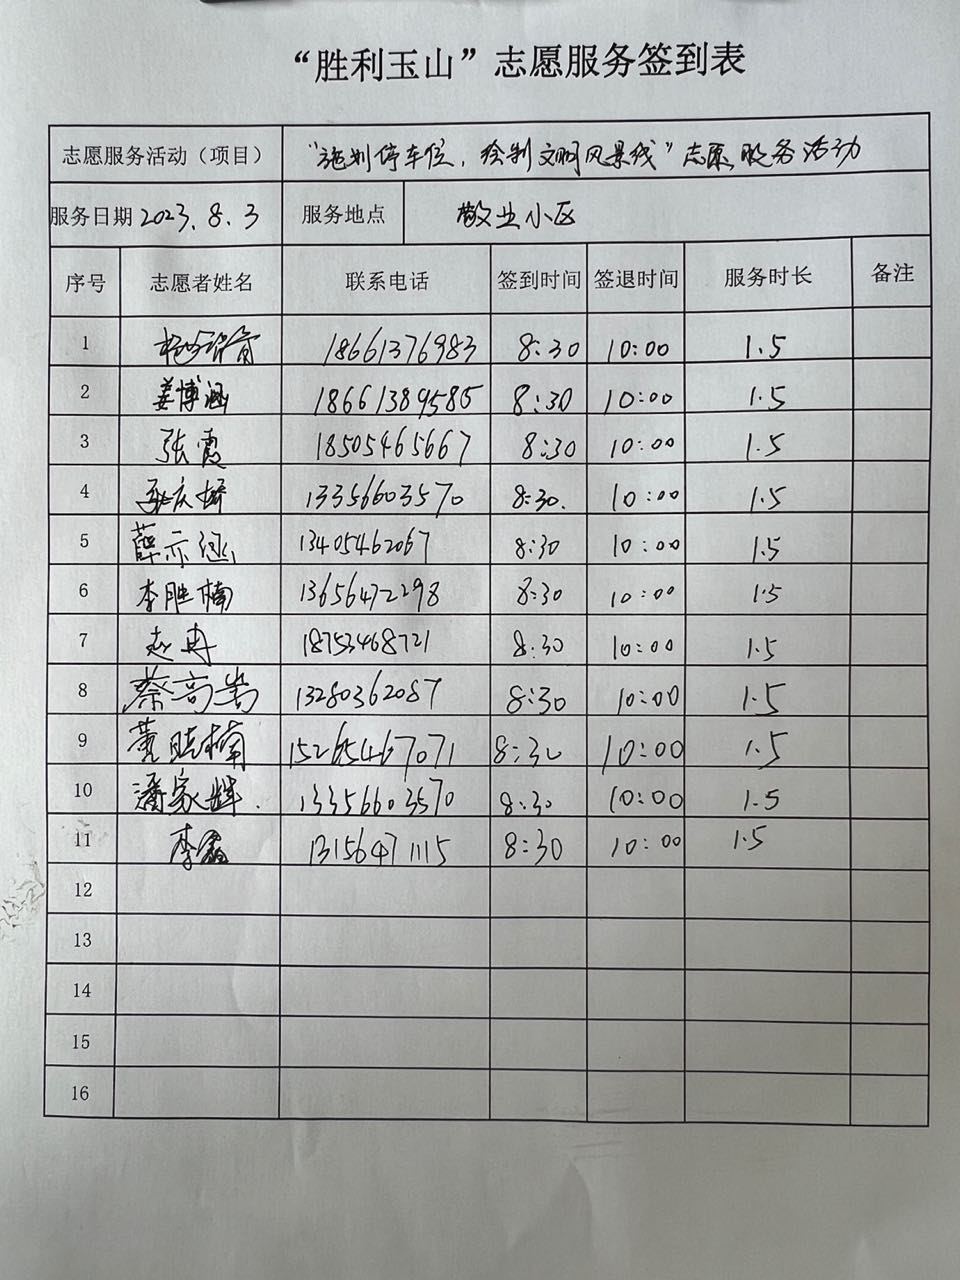 “胜利玉山”志愿服务签到表
志愿服务活动（项目） “施划停车位，绘制文明风景线”志愿服务活动
服务日期 2023.8.3 服务地点 敬业小区
序号 志愿者姓名 联系电话 签到时间 签退时间 服务时长 备注
1 18661376983 8:30 10:00 1.5
2 姜博涵 18661389585 8:30 10:00 1.5
3 张霞 18505465667 8:30 10:00 1.5
4 13356603570 8:30. 10:00 1.5
5 薛亦涵 13405462067 8:30 10:00 1.5
6 李胜楠 13656472298 8:30 10:00 1.5
7 赵冉 18753468721 8:30 10:00 1.5
8 蔡高嵩 13280362087 8:30 10:00 1.5
9 董晓楠 15265467071 8:30 10:00 1.5
10 潘家辉. 13356603570 8:30 10:00 1.5
11 李鑫 13156471115 8:30 10:00 1.5
12
13
14
15
16